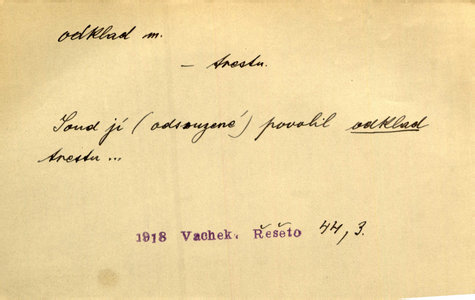 odklad m.
– trestu.
Soud jí (odsouzené) povolil odklad
trestu...
1918 Vachek. Řešeto 44, 3.